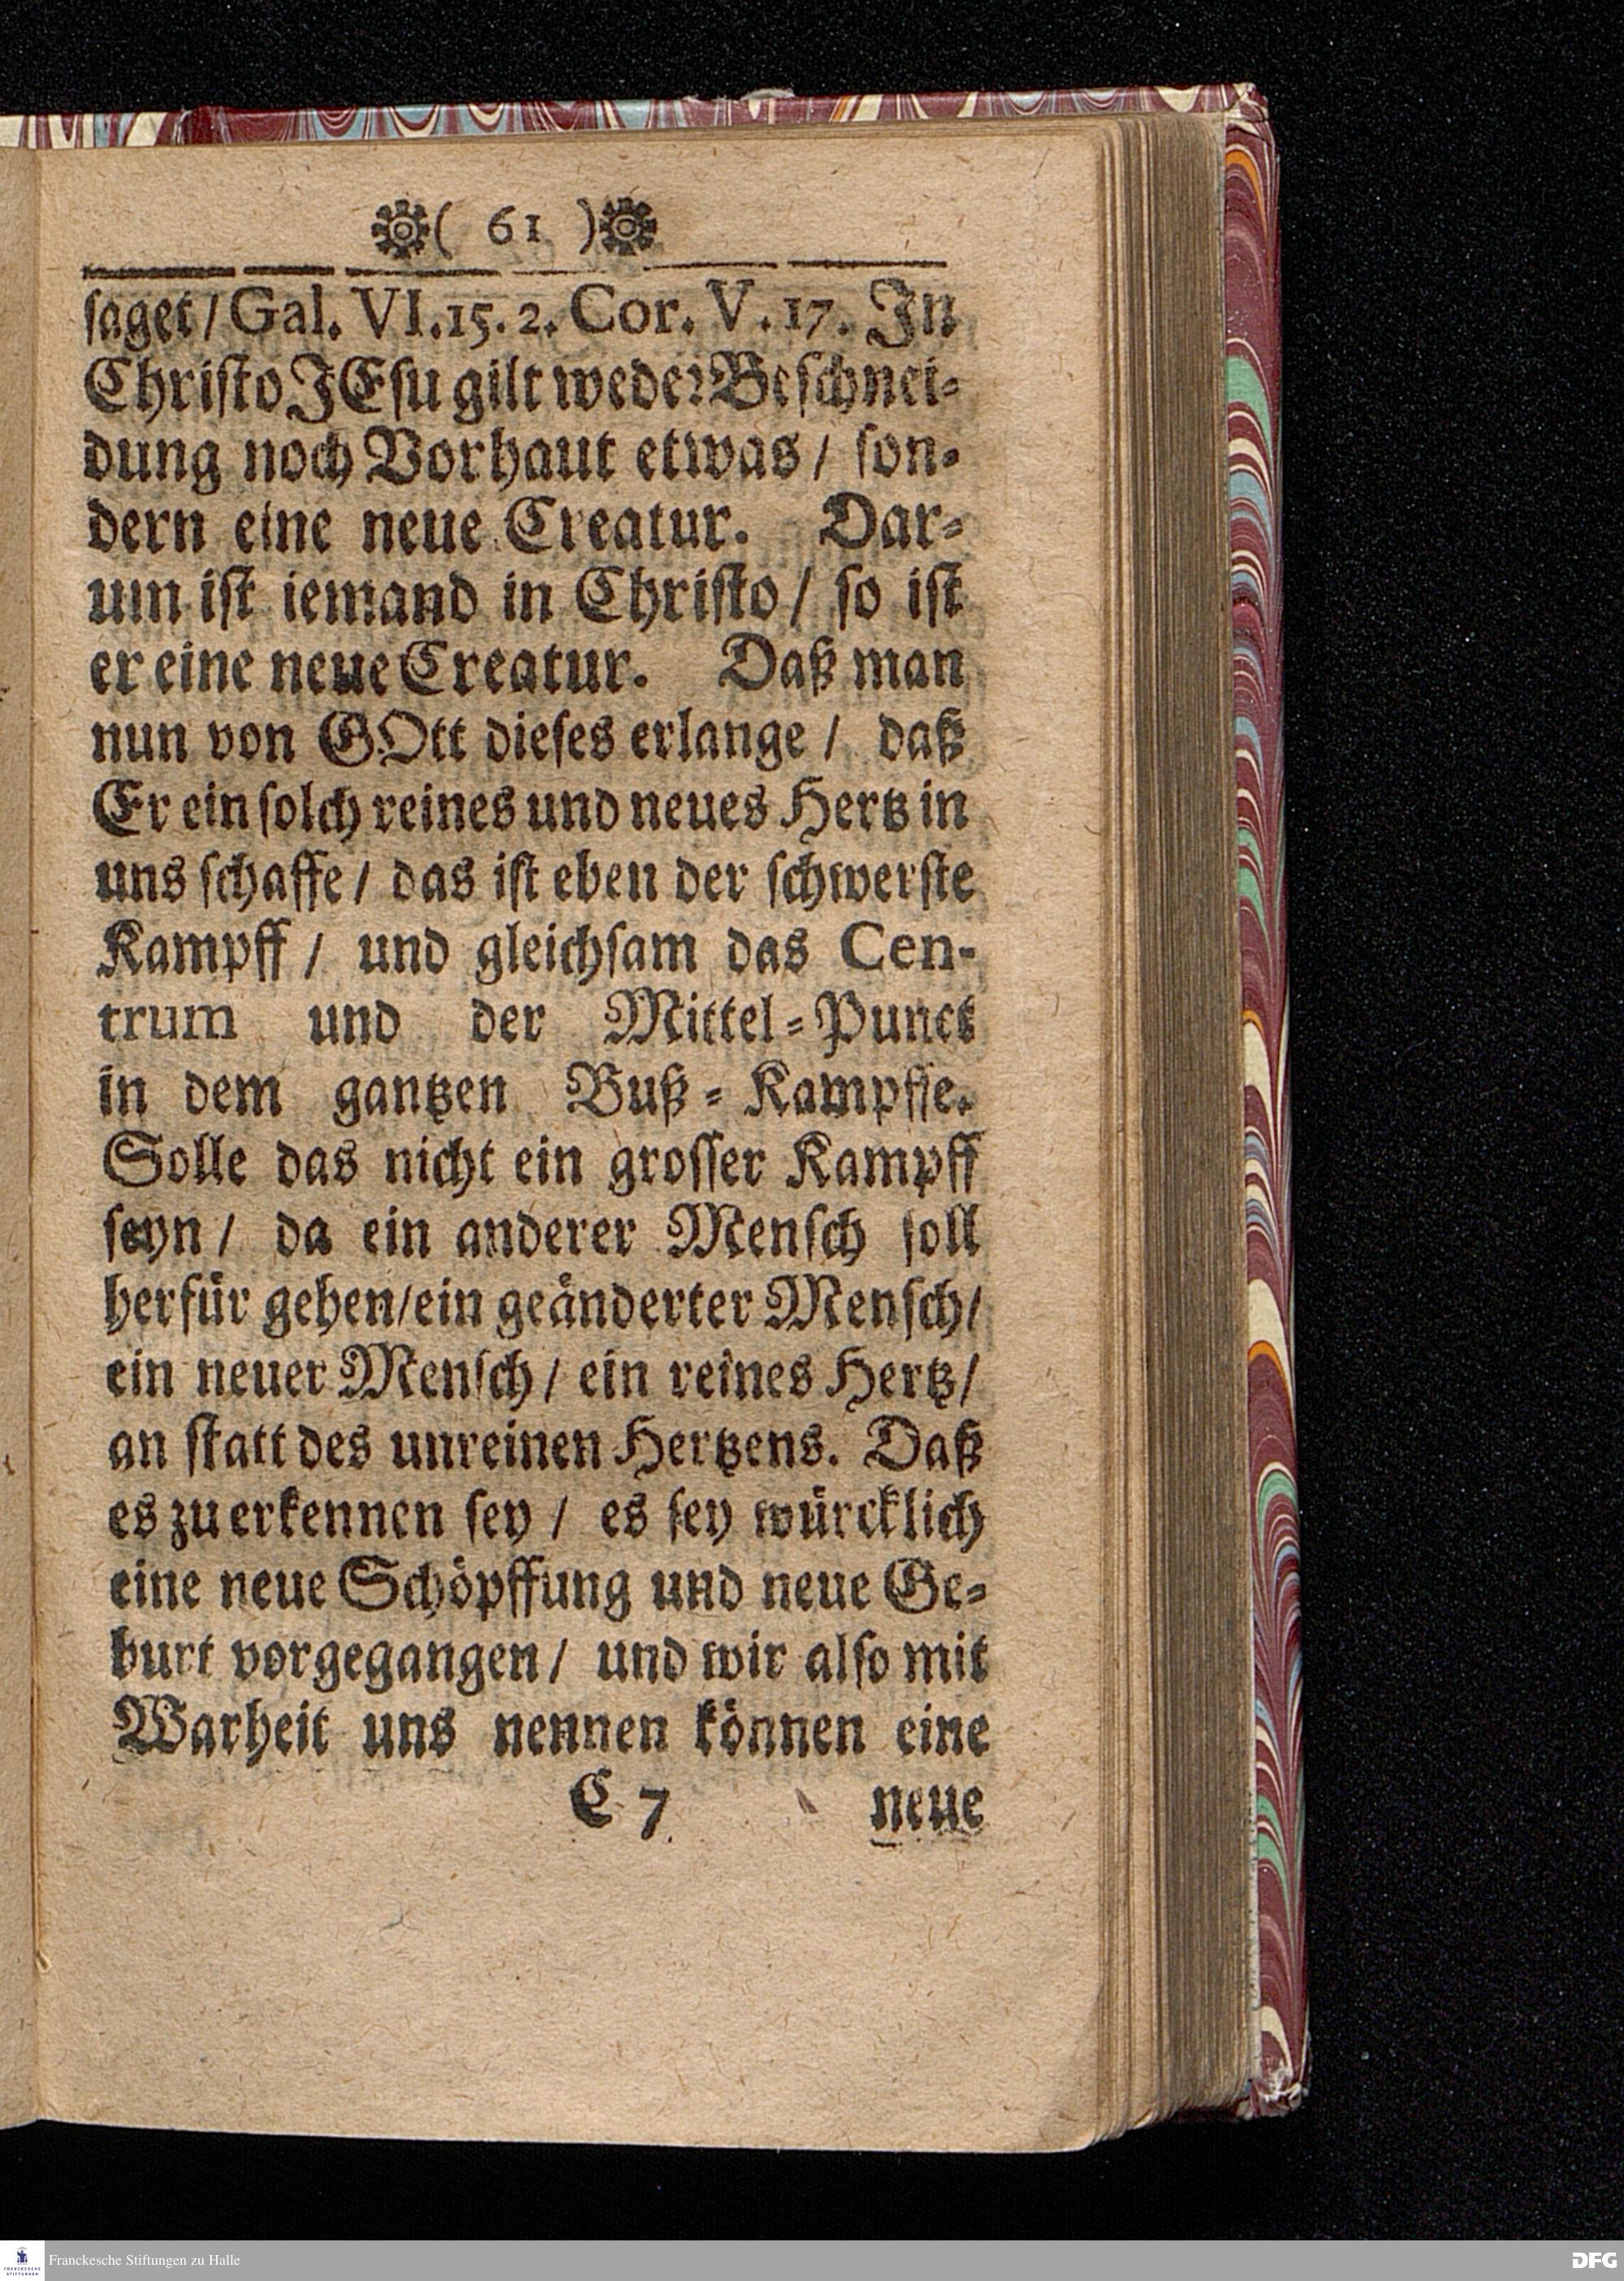 ( 61 )
ſaget / Gal. VI.15. 2. Cor. V. 17. In
Chriſto JEſu gilt weder Beſchnei⸗
dung noch Vorhaut etwas / ſon⸗
dern eine neue Creatur. Dar⸗
um iſt iemand in Chriſto / ſo iſt
er eine neue Creatur. Daß man
nun von GOtt dieſes erlange / daß
Er ein ſolch reines und neues Hertz in
uns ſchaffe / das iſt eben der ſchwerſte
Kampff / und gleichſam das Cen-
trum und der Mittel⸗Punct
in dem gantzen Buß⸗Kampffe.
Solle das nicht ein groſſer Kampff
ſeyn / da ein anderer Menſch ſoll
herfür gehen/ein geänderter Menſch/
ein neuer Menſch / ein reines Hertz/
an ſtatt des unreinen Hertzens. Daß
es zu erkennen ſey / es ſey würcklich
eine neue Schöpffung und neue Ge⸗
burt vorgegangen / und wir alſo mit
Warheit uns nennen können eine
C 7 neue
FRANCKESCHE STIFTUNGEN Franckesche Stiftungen zu Halle DFG